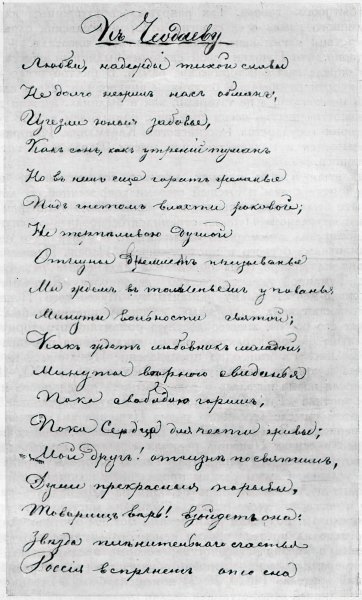 Къ Чеодаеву
Любви, надежды тихой славы
Не долго нежилъ насъ обманъ,
Изчезли юныя забавы,
Какъ сонъ, какъ утреній туманъ
Но въ насъ еще горятъ желанья
Подъ гнетомъ власти роковой;
Не терпѣливою душой
Отчизны внемлемъ призыванья
Ми ждемъ въ томленьемъ упованья
Минути вольности святой;
Какъ ждетъ любовникъ молодой
Минуты вѣрного свиданья
Пока свабодою горимъ,
Пока Сердца для чести живы;
Мой другъ! отчизнѣ посвятимъ,
Души прекрасныя порывы,
Товарищъ вѣрь! взойдетъ она:
Звезда пленительного счастья
Россія вспрянетъ ото сна